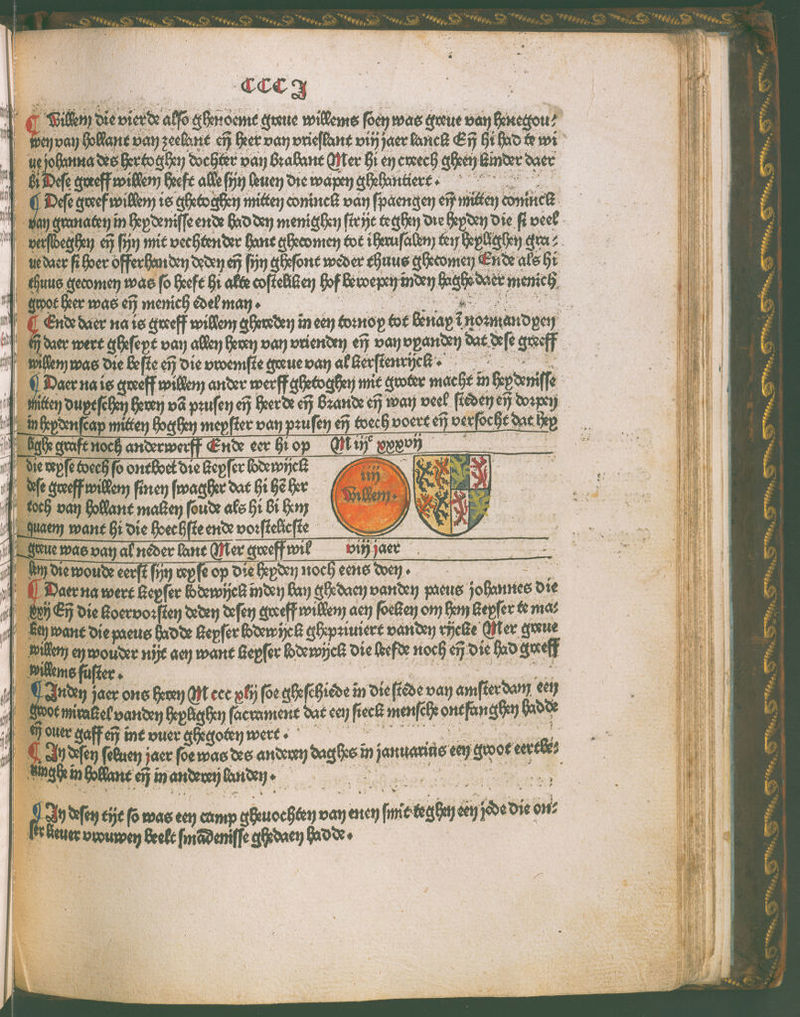 CCC J
¶ Willem die vierde also ghenoemt greue willems soen was greue van henegou⸗
wen van hollant van zeelant eñ heer van vrieslant viij jaer lanck Eñ hi had te wi
ue johanna des hertoghen dochter van brabant Mer hi en creech gheen kinder daer
bi Dese greeff willem heeft alle sijn leuen die wapen ghehantiert.
¶ Dese greef willem is ghetoghen mitten coninck van spaengen eñ mitten coninck
van granaten in heydenisse ende had den menighen strijt teghen die heyden die si veel
versloeghen eñ sijn mit vechtender hant ghecomen tot iherusalem ten heylighen gra⸗
ue daer si hoer offerhanden deden eñ sijn ghesont weder thuus ghecomen Ende als hi
thuus gecomen was so heeft hi alte costeliken hof beroepen inden haghe daer menich
groot heer was eñ menich edel man.
¶ Ende daer na is greeff willem ghereden in een tornoy tot benay ī normandyen
eñ daer wert gheseyt van allen heren van vrienden eñ van vyanden dat dese greeff
willem was die beste eñ die vroemste greue van al kerstenrijck.
¶ Daer na is greeff willem ander werff ghetoghen mit groter macht in heydenisse
mitten duytschen heren vā prusen eñ heerde eñ brande eñ wan veel steden eñ dorpen
in heydenscap mitten hoghen meyster van prusen eñ toech voert eñ versocht dat hey
lighe graft noch anderwerff Ende eer hi op
M iijᶜ xxxvij
die reyse toech so ontboet die keyser lodewijck
dese greeff willem sinen swagher dat hi hē her
toch van hollant maken soude als hi bi hem
quaem want hi die hoechste ende vorstelicste
iiij
Willem.
greue was van al neder lant Mer greeff wil
viij jaer
lem die woude eerst sijn reyse op die heyden noch eens doen.
¶ Daer na wert keyser lodewijck inden ban ghedaen vanden paeus johannes die
xxij Eñ die koervorsten deden desen greeff willem aen soeken om hem keyser te ma⸗
ken want die paeus hadde keyser lodewijck ghepriuiert vanden rijcke Mer greue
willem en wouder nijt aen want keyser lodewijck die leefde noch eñ die had greeff
willems suster.
¶ Inden jaer ons heren M ccc xlij soe gheschiede in die stede van amsterdam een
groot mirakel vanden heylighen sacrament dat een sieck mensche ontfanghen hadde
eñ ouer gaff eñ int vuer ghegoten wert.
¶ In desen seluen jaer soe was des anderen daghes in januarius een groot eertbe⸗
uinghe in hollant eñ in anderen landen.
¶ In desen tijt so was een camp gheuochten van enen smit teghen een jode die on⸗
ser lieuer vrouwen beelt smādenisse ghedaen hadde.